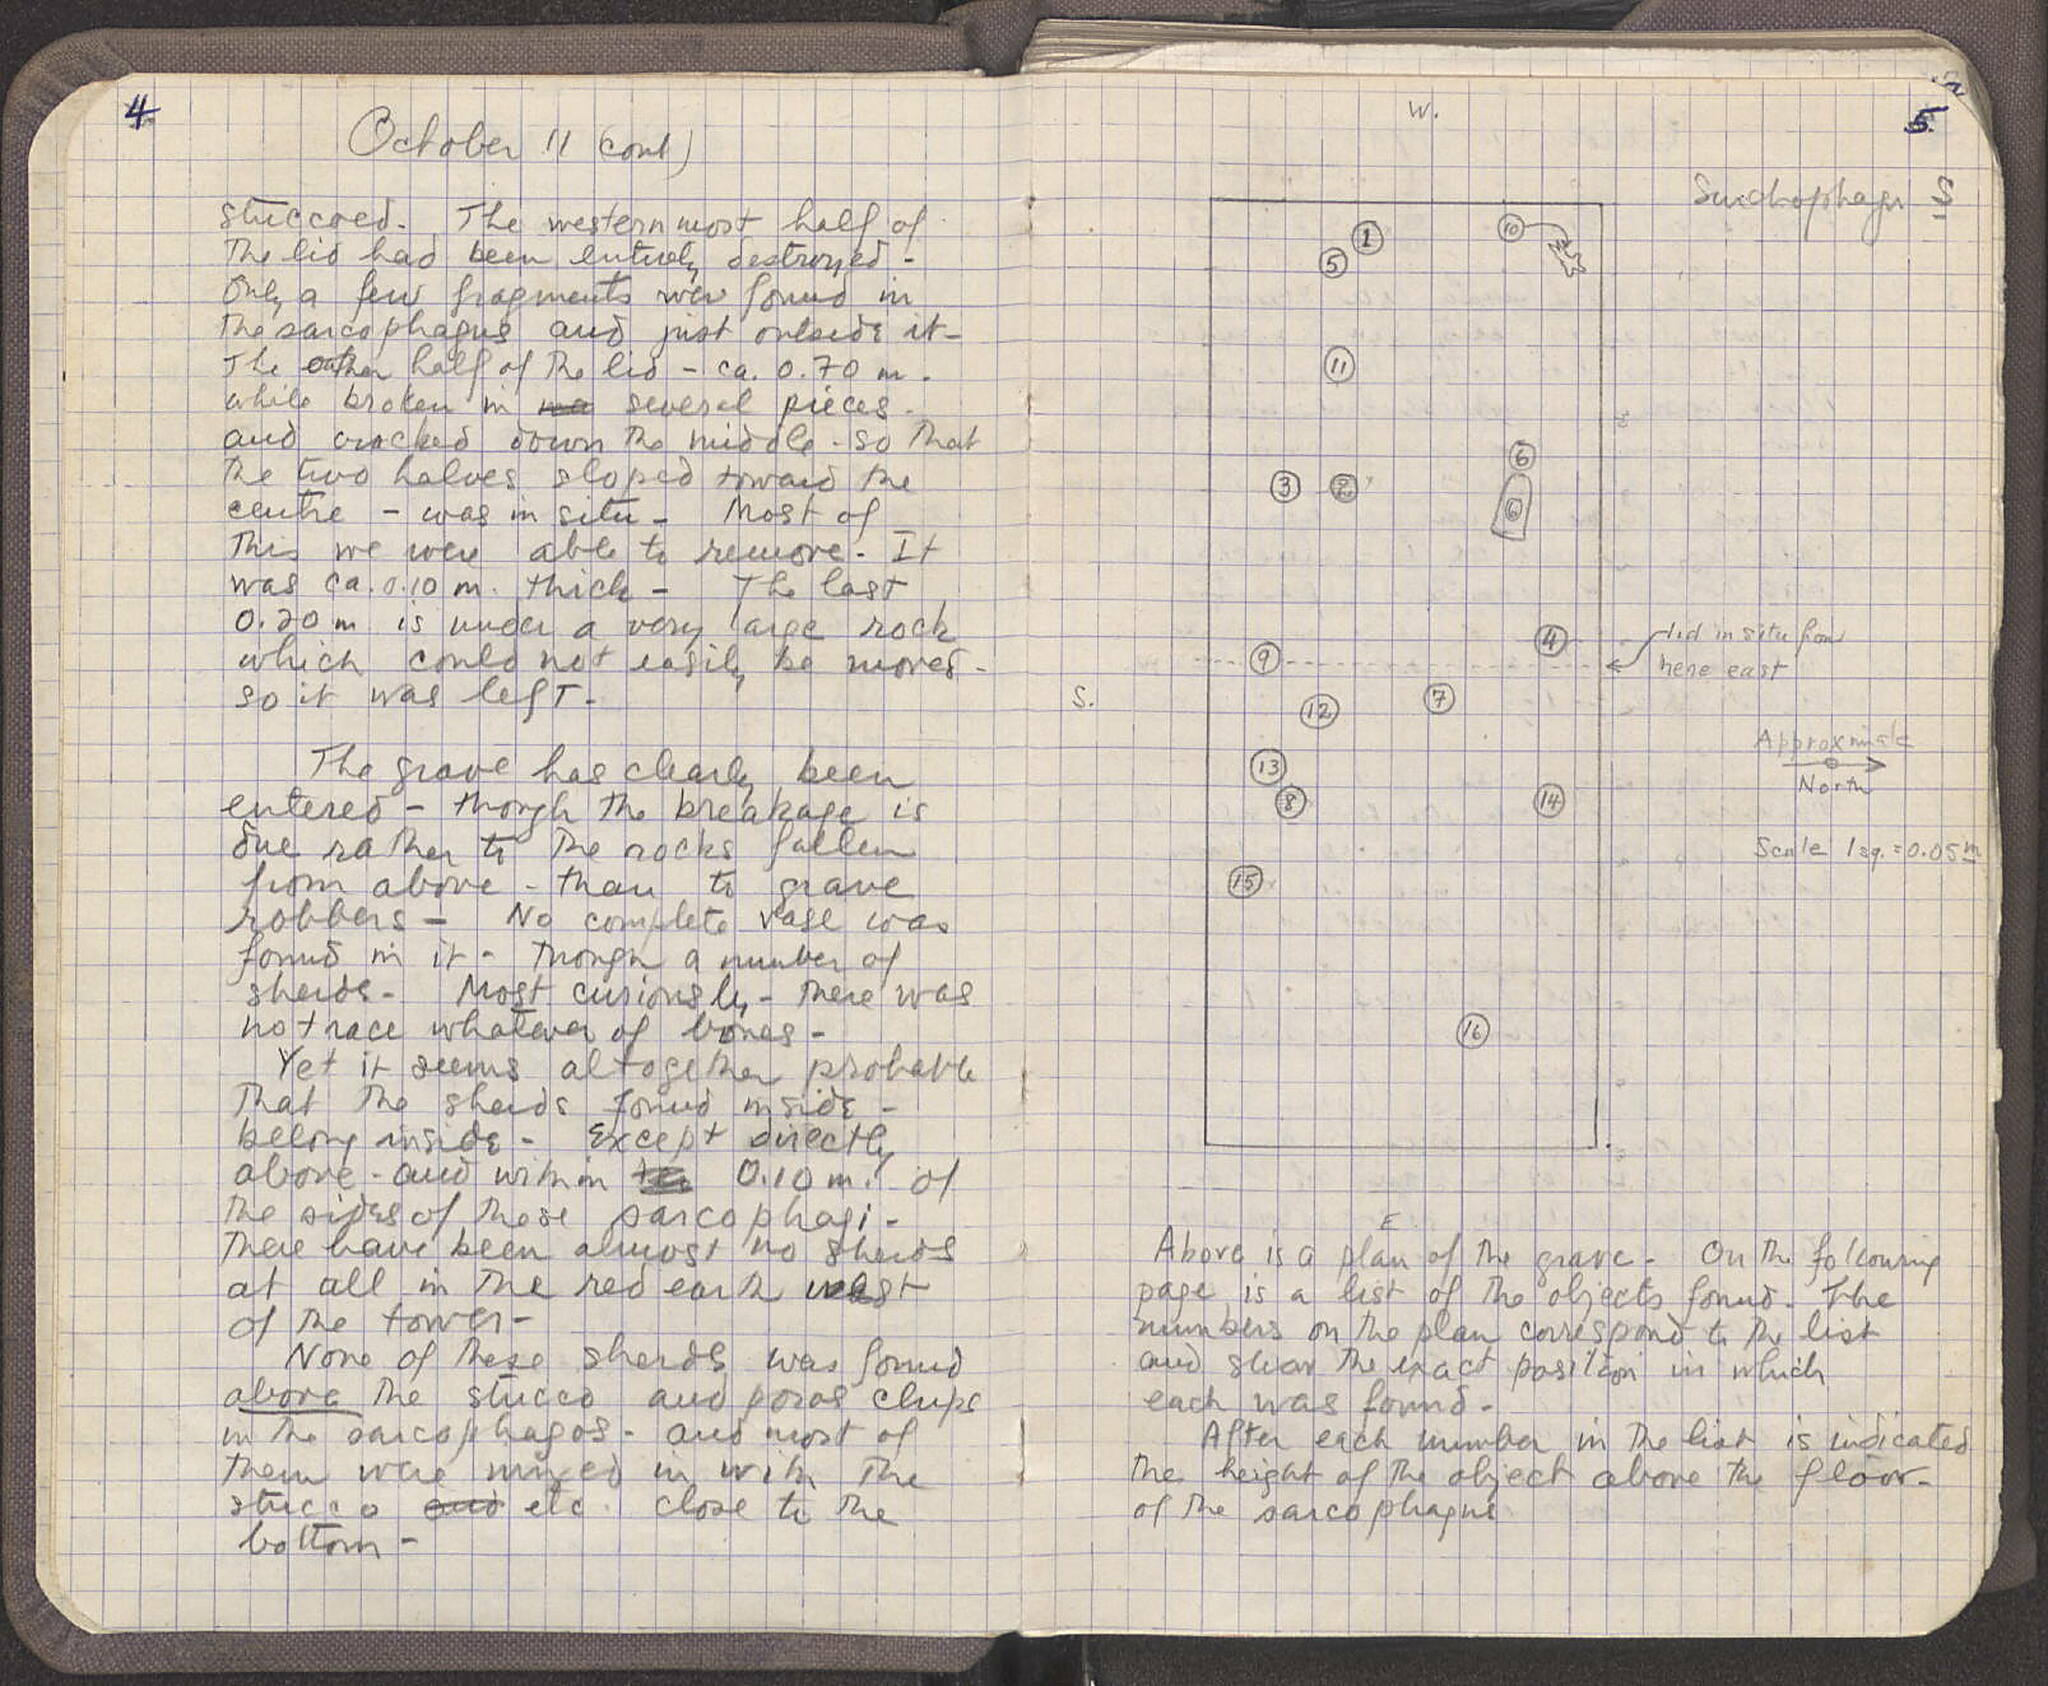 4
October 11 (cont)
stuccoed. The westernmost half of
the lid had been entirely destroyed -
Only a few fragments were found in
the sarcophagus and just outside it -
The other half of the lid - ca. 0.70 m.
while broken in several pieces -
and cracked down the middle - so that
the two halves sloped toward the
centre - was in situ - Most of
this we were able to remove. It
was ca. 0.10 m. thick - The last
0.20 m is under a very large rock
which could not easily be moved -
so it was left -
The grave has clearly been
entered - though the breakage is
due rather to the rocks fallen
from above - than to grave
robbers - No complete vase was
found in it - though a number of
sherds - Most curiously - there was
no trace whatever of bones -
Yet it seems altogether probable
that the sherds found inside -
belong inside - Except directly
above - and within 0.10 m. of
the sides of these sarcophagi -
there have been almost no sherds
at all in the red earth west
of the tower -
None of these sherds was found
above the stucco and poros chips
in the sarcophagos - and most of
them were mixed in with the
stucco and etc. close to the
bottom -
5.
W.
S
1
10
5
11
6
3
2
6
4
lid in situ from
here east
9
S.
7
12
Approximate
North
13
8
14
Scale 1 sq. = 0.05 m
15
16
E
Above is a plan of the grave - On the following
page is a list of the objects found. The
numbers on the plan correspond to the list
and show the exact position in which
each was found -
After each number in the list is indicated
the height of the object above the floor -
of the sarcophagus